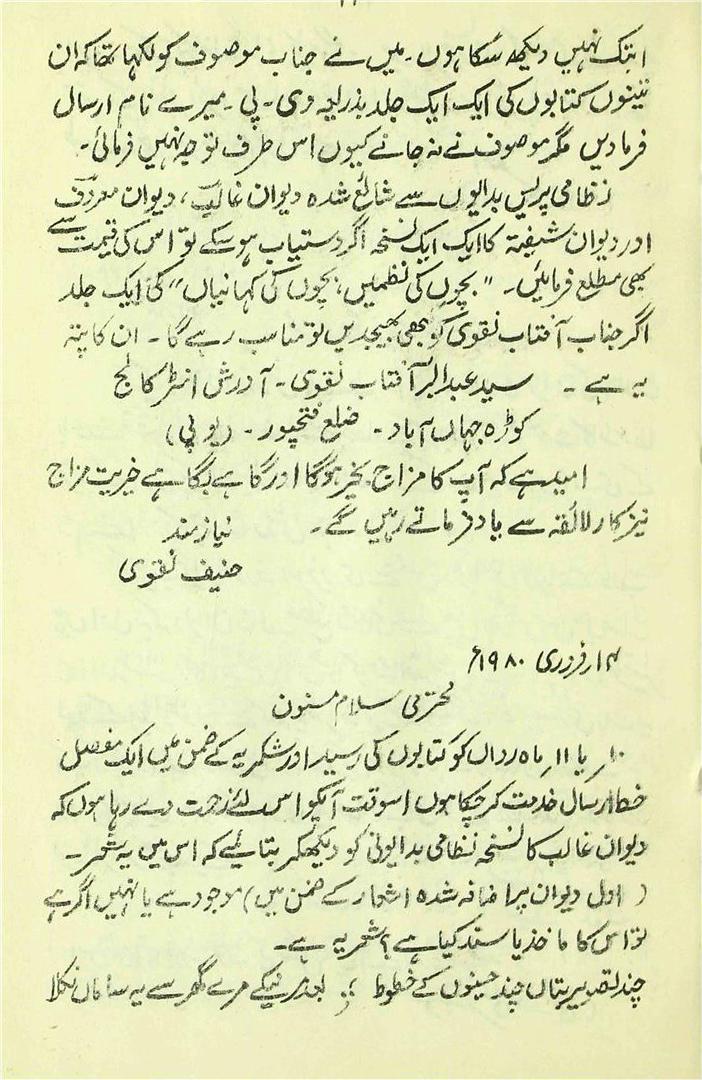 ابتک نہیں دیکھ سکا ہوں۔ میں نے جناب موصوف کو لکھا تھا کہ ان
تینوں کتابوں کی ایک ایک جلد بذریعہ وی۔ پی۔ میرے نام ارسال
فرمادیں مگر موصوف نے نہ جانے کیوں اس طرف توجہ نہیں فرمائی۔
نظامی پریس بدایوں سے شائع شدہ دیوان غالب، دیوان معروف
اور دیوان شیفتہ کا ایک ایک نسخہ اگر دستیاب ہو سکے تو اس کی قیمت سے
بھی مطلع فرمائیں۔ "بچوں کی نظمیں، بچوں کی کہانیاں" کی ایک جلد
اگر جناب آفتاب نقوی کو بھی بھیجدیں تو مناسب رہے گا۔ ان کا پتہ
یہ ہے۔ سید عبدالبر آفتاب نقوی۔ آدرش انٹر کالج
کوڑہ جہاں آباد۔ ضلع فتحپور۔ (یو پی)
امید ہے کہ آپ کا مزاج بخیر ہوگا اور گاہے بگاہے خیریت مزاج
نیز کار لائقہ سے یاد فرماتے رہیں گے۔
نیاز مند
حنیف نقوی
۱۴ر فروری ۱۹۸۰ء
محترمی سلام مسنون
۱۰ر یا ۱۱ر ماہ رواں کو کتابوں کی رسید اور شکریہ کے ضمن میں ایک مفصل
خط ارسال خدمت کر چکا ہوں اسوقت آپکو اس لئے زحمت دے رہا ہوں کہ
دیوان غالب کا نسخہ نظامی بدایونی کو دیکھکر بتائیے کہ اس میں یہ شعر۔
(اول دیوان پر اضافہ شدہ اشعار کے ضمن میں) موجود ہے یا نہیں اگر ہے
تو اس کا ماخذ یا سند کیا ہے؟ شعر یہ ہے۔
چند تصویر بتاں چند حسینوں کے خطوط ؛ بعد مرنیکے مرے گھر سے یہ ساماں نکلا